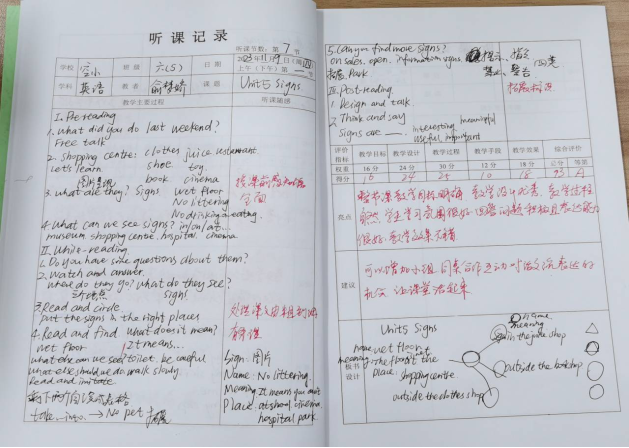 听课记录
听课节数: 第 7 节
学校 宝小 班级 六(5) 日期 2023.11.9 (周四)
上午(下午)第 一 节
学科 英语 教者 课题 Unit5 Signs
教学主要过程 听课随感
I. Pre-reading
1. What did you do last weekend?
Free talk
2. Shopping centre: clothes juice restaurant
Let's learn shoe toy
book cinema
3. What are they? Signs Wet floor
No littering
No drinking & eating
4. What can we see signs? in/on/at...
museum, shopping centre, hospital, cinema
II. While-reading
1. Do you have some questions about them?
2. Watch and answer.
Where do they go? What do they see?
三个地点 signs
3. Read and circle
put the signs in the right places
4. Read and find What does it mean?
wet floor It means...
what else can we see? toilet be careful
what else should we do walk slowly
Read and imitate
→ No pet
全面
Sign: 图片
Name: No littering
Meaning: It means you can't
Place: at school, cinema
hospital, park
5. Can you find more signs?
on sales, open, information signs 提示 指示
禁止 警告 四类
拓展 Park
III. Post-reading
拓展标识
1. Design and talk
2. Think and say
Signs are ___. interesting meaningful
useful important
评价指标 教学目标 教学设计 教学过程 教学手段 教学效果 综合评价
权重 16分 24分 30分 12分 18分 总分 等第
得分 16 24 25 10 18 93 A
亮点
整节课教学目标明确 教学设计优秀, 教学过程
自然, 学生学习氛围很好, 回答问题积极且表达能力
很好, 教学效果不错
建议
可以增加小组、同桌合作互动对话交流表达的
机会 让课堂活起来
板书设计
Unit5 Signs
name: wet floor
meaning: the floor is wet
Place: shopping centre
on the juice shop
outside the bookshop
outside the clothes shop